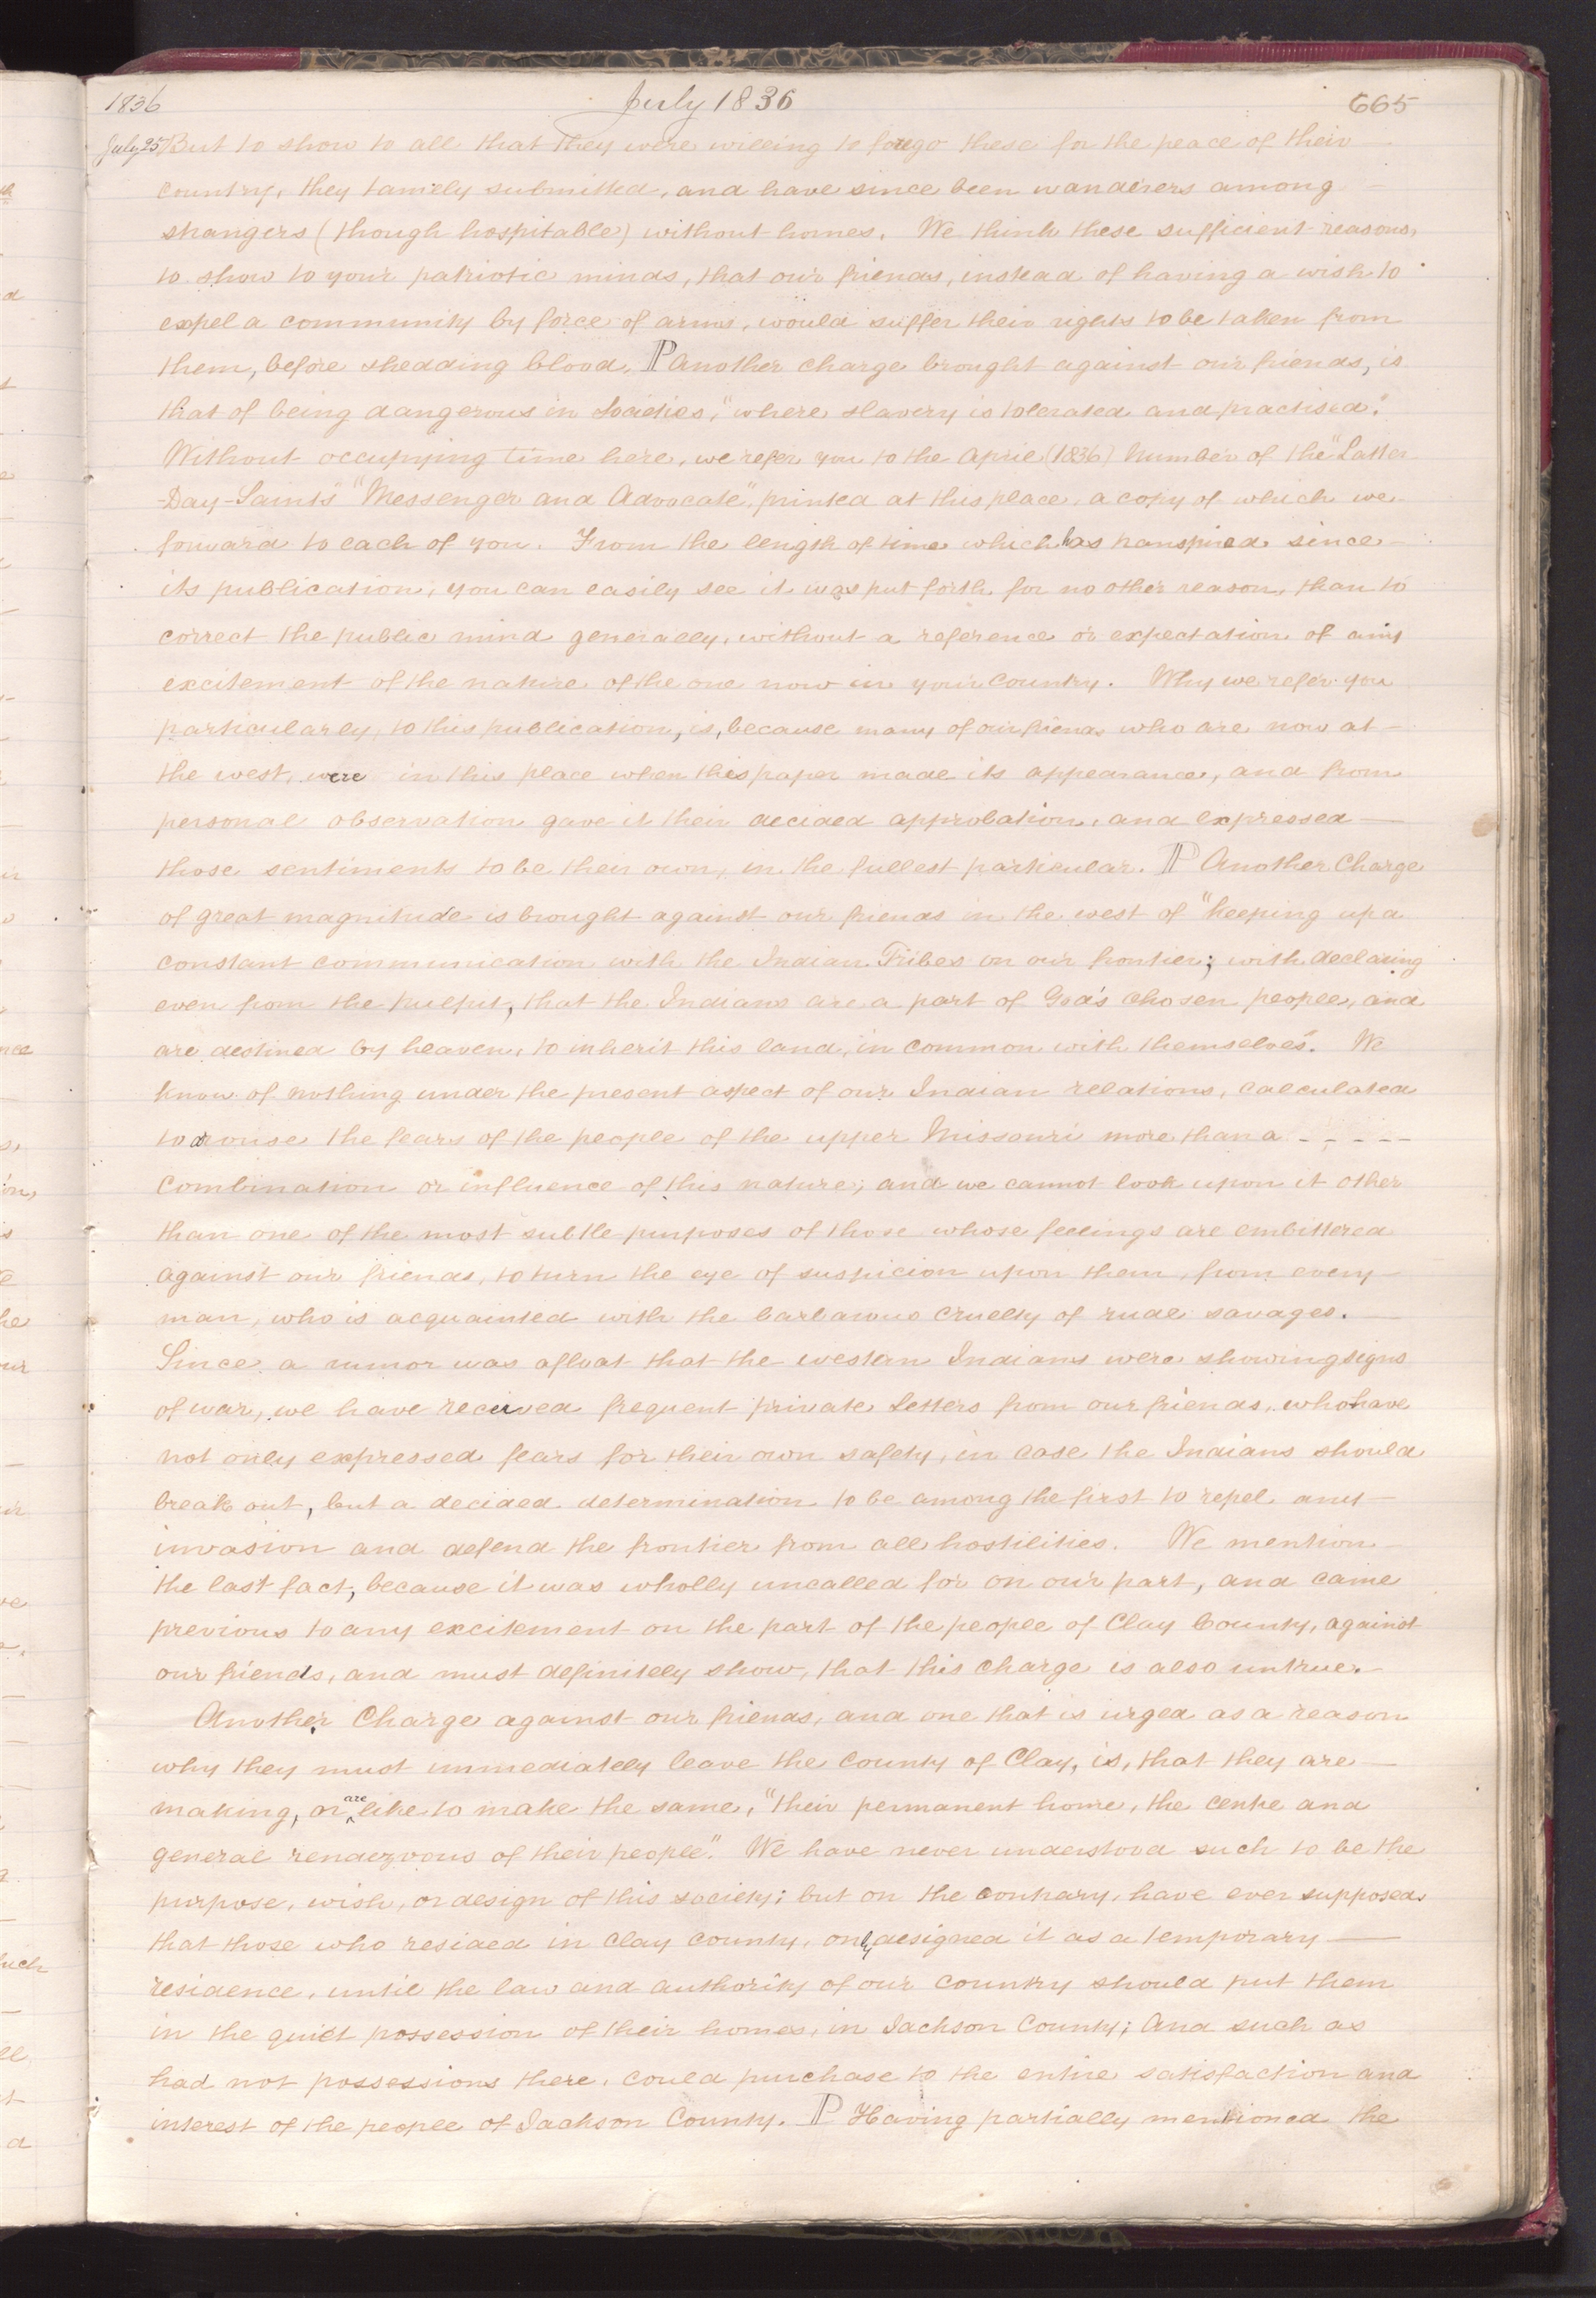 1836 July 1836 665
July 25 But to show to all that they were willing to forego these for the peace of their
country, they tamely submitted, and have since been wanderers among
strangers (though hospitable) without homes. We think these sufficient reasons,
to show to your patriotic minds, that our friends, instead of having a wish to
expel a community by force of arms, would suffer their rights to be taken from
them, before shedding blood. ℙ Another charge brought against our friends, is
that of being dangerous in Societies, "where slavery is tolerated and practised."
Without occupying time here, we refer you to the April (1836) Number of the "Latter
-Day-Saints" "Messenger and Advocate", printed at this place, a copy of which we
forward to each of you. From the length of time which has transpired since
its publication, you can easily see it was put forth for no other reason, than to
correct the public mind generally, without a reference or expectation of any
excitement of the nature of the one now in your country. Why we refer you
particularly, to this publication, is, because many of our friends who are now at
the west, were in this place when this paper made its appearance, and from
personal observation gave it their decided approbation, and expressed
those sentiments to be their own, in the fullest particular. ℙ Another Charge
of great magnitude is brought against our friends in the west of "keeping up a
constant communication with the Indian Tribes on our frontier; with declaring
even from the pulpit, that the Indians are a part of God's chosen people, and
are destined by heaven, to inherit this land, in common with themselves". We
know of nothing under the present aspect of our Indian relations, calculated
to arouse the fears of the people of the upper Missouri more than a - - - - -
combination or influence of this nature; and we cannot look upon it other
than one of the most subtle purposes of those whose feelings are embittered
against our friends, to turn the eye of suspicion upon them, from every
man, who is acquainted with the barbarous cruelty of rude savages.
Since a rumor was afloat that the western Indians were showing signs
of war, we have received frequent private Letters from our friends, who have
not only expressed fears for their own safety, in case the Indians should
break out, but a decided determination to be among the first to repel any
invasion and defend the frontier from all hostilities. We mention
the last fact, because it was wholly uncalled for on our part, and came
previous to any excitement on the part of the people of Clay County, against
our friends, and must definitely show, that this charge is also untrue.
Another Charge against our friends, and one that is urged as a reason
why they must immediately leave the County of Clay, is, that they are
making, or are like to make the same, "their permanent home, the centre and
general rendezvous of their people". We have never understood such to be the
purpose, wish, or design of this society; but on the contrary, have ever supposed
that those who resided in Clay County, only designed it as a temporary
residence, until the law and authority of our country should put them
in the quiet possession of their homes, in Jackson County; And such as
had not possessions there, could purchase to the entire satisfaction and
interest of the people of Jackson County. ℙ Having partially mentioned the